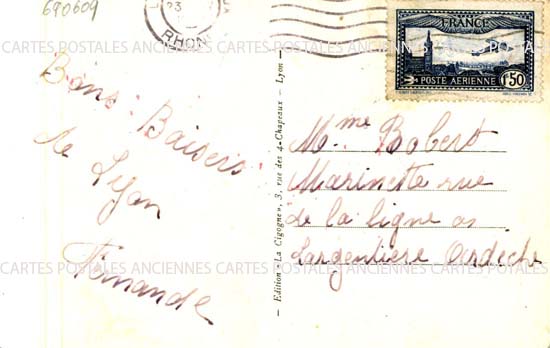 670609
23
RHON
FRANCE
POSTE AÉRIENNE
1F50
CARTES POSTALES ANCIENNES CARTES POSTALES ANCIENNES CARTES POSTALES
Bons Baisers
de Lyon
Fernande
— Edition « La Cigogne », 3, rue des 4-Chapeaux — Lyon —
Mme Bobert
Marinette rue
de la ligne
Largentiere Ardeche
CARTES POSTALES ANCIENNES CARTES POSTALES ANCIENNES CARTES POSTALES